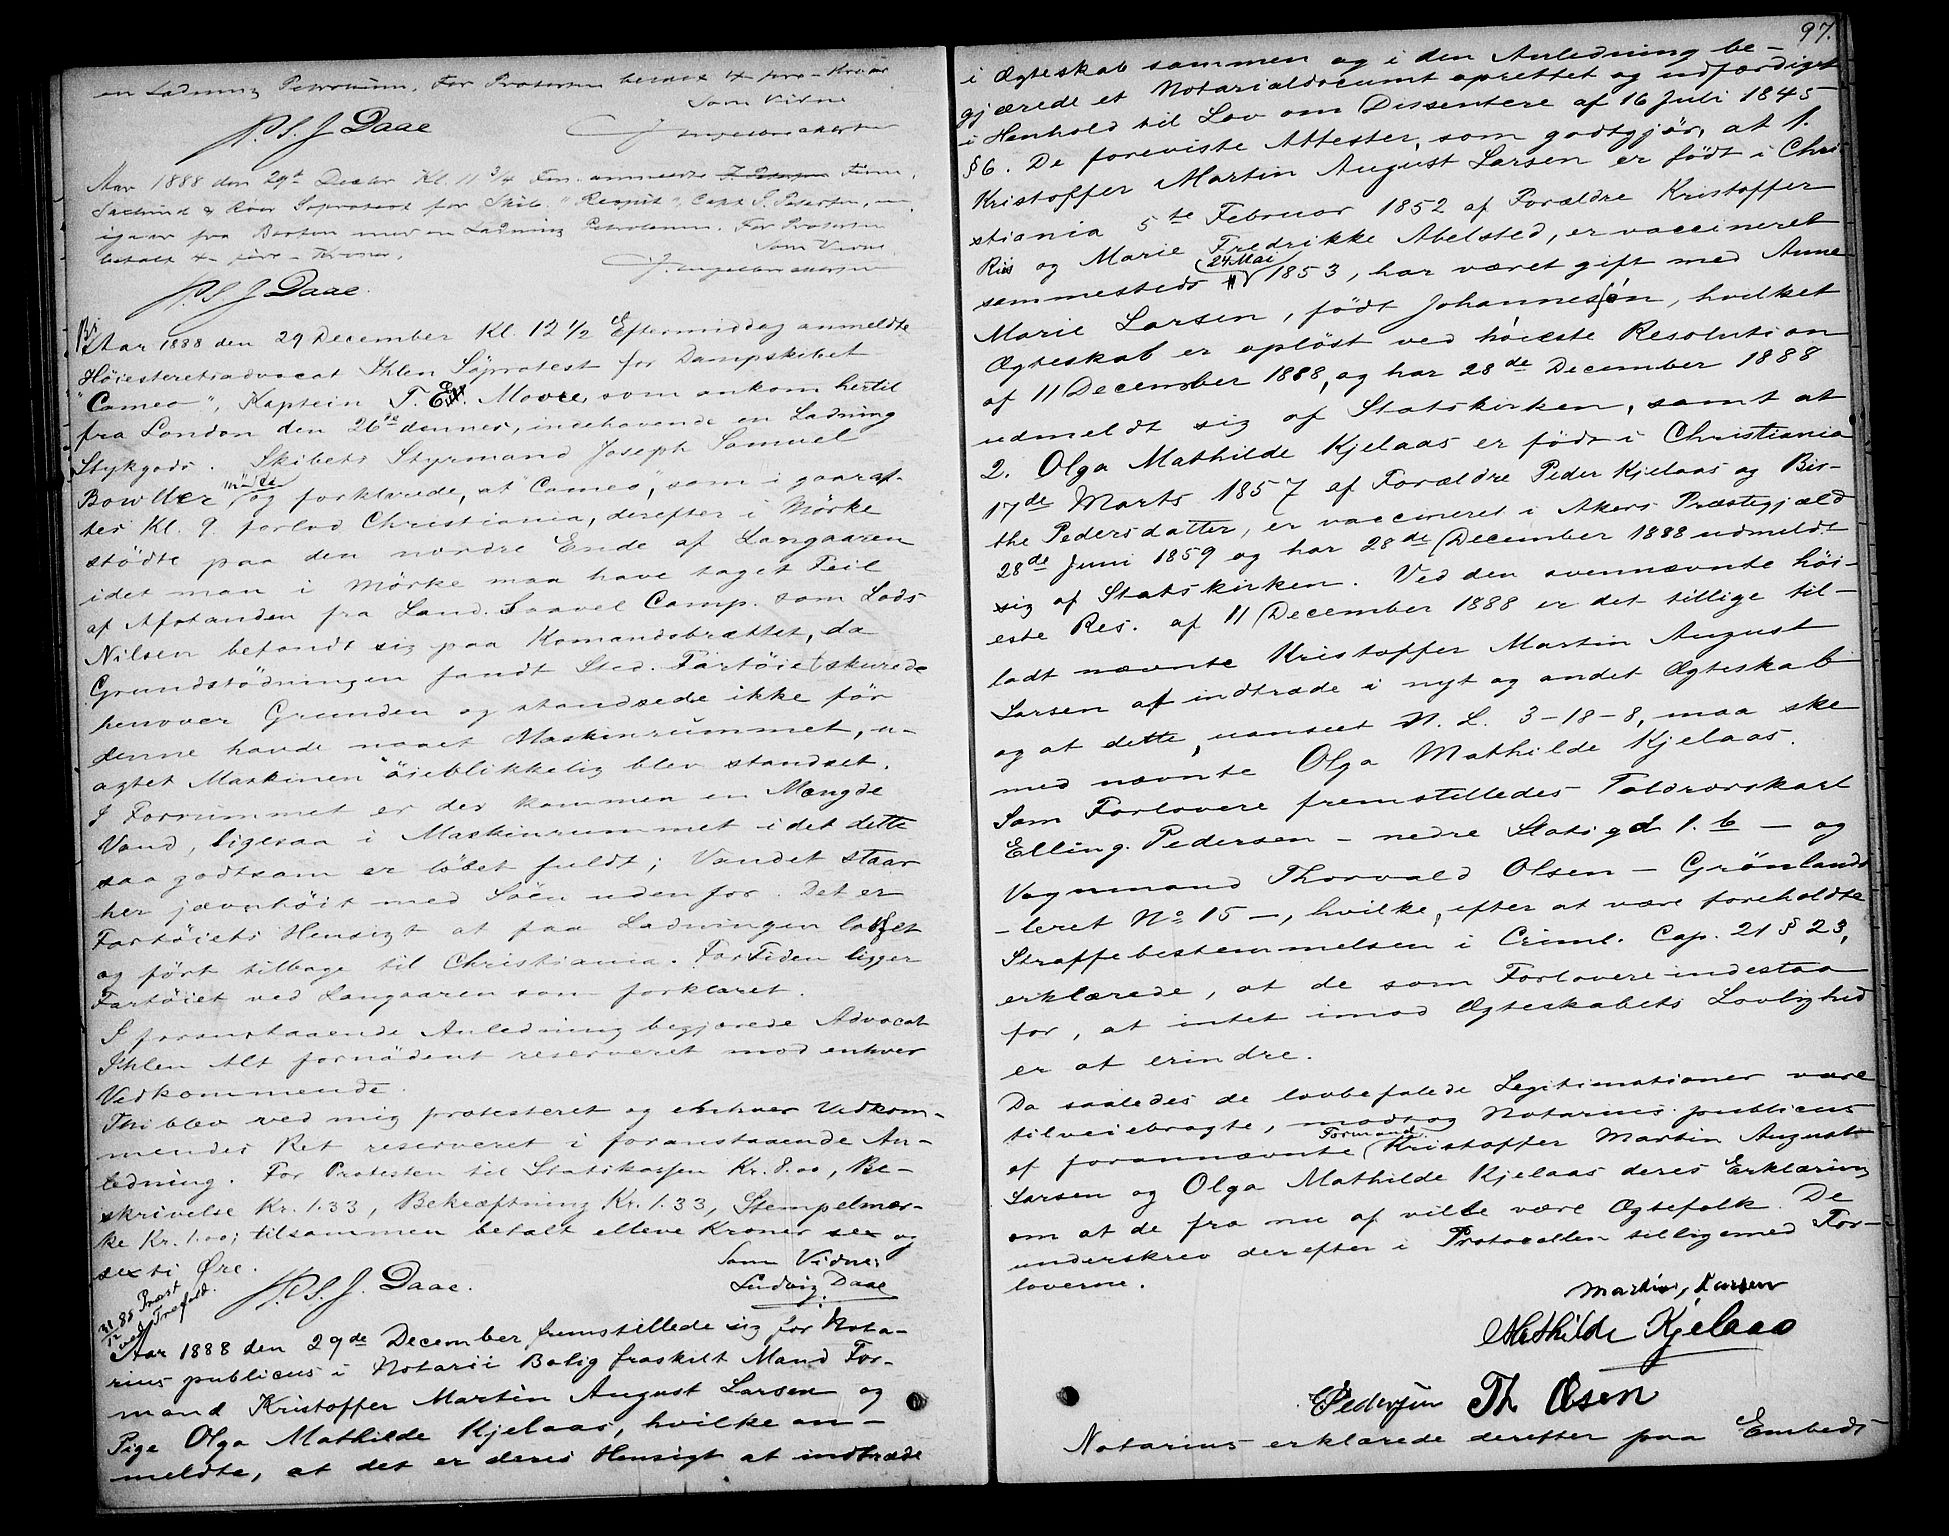 en Ladning Petroleum. For Protesten betalt 4 fire Kroner
Som Vidne
P. S. J. Daae
J. Engelbrechtsen
Aar 1888 den 29de Decbr Kl. 11 3/4 Fm. anmeldte Firma
Søprotest for Skib "Respit", Capt
igaar fra Boston med en Ladning Petroleum. For Protesten
betalt 4 fire Kroner.
Som Vidne
P. S. J. Daae.
Aar 1888 den 29 December Kl. 12 1/2 Eftermiddag anmeldte
Høiesteretsadvocat Ihlen Söprotest for Dampskibet
"Cameo", Kaptein T. E. Moore, som ankom hertil
fra London den 26de dennes, inoehavende en Ladning
Stykgods. Skibets Styrmand Joseph Samuel
Bowller mödte og forklarede, at "Cameo", som i gaar af-
tes Kl. 9 forlod Christiania, derefter i Mörke
stödte paa den nordre Ende af Langaaren
idet man i Mörke maa have taget Feil
af Afstanden fra Land. Saavel Camp. som Lods
Nilsen befandt sig paa Komandobrættet, da
Grundstödningen fandt Sted. Fartöiet skurede
henover Grunden og standsede ikke för
denne havde naaet Maskinrummet, u-
agtet Maskinen öieblikkelig blev standset.
I Forrummet er der kommen en Mængde
Vand, ligesaa i Maskinrummet idet dette
saa godtsom er löbet fuldt; Vandet staar
her jævnhöit med Söen udenfor. Det er
Fartöiets Hensigt at faa Ladningen losset
og fört tilbage til Christiania. For Tiden ligger
Fartöiet ved Langaaren som forklaret.
I foranstaaende Anledning begjærede Advocat
Ihlen Alt fornödent reserveret mod enhver
Vedkommende.
Thi blev ved mig protesteret og enhver Vedkom-
mendes Ret reserveret i foranstaaende An-
ledning. For Protesten til Statskassen Kr. 8.00, Be-
skrivelse Kr. 1.33, Bekræftning Kr. 1.33, Stempelmær-
ke Kr. 1.00; tilsammen betalt elleve Kroner sex og
sexti Øre.
Som Vidne:
P. S. J. Daae.
Ludvig Daae
31/12 88 Præst
ved Trefold.
Aar 1888 den 29de December fremstillede sig for Nota-
rius publicus i Notarii Bolig fraskilt Mand For-
mand Kristoffer Martin August Larsen og
Pige Olga Mathilde Kjelaas, hvilke an-
meldte, at det er deres Hensigt at indtræde
97.
i Ægteskab sammen og i den Anledning be-
gjærede et Notarialdocumt oprettet og udfærdiget
i Henhold til Lov om Dissentere af 16 Juli 1845
§ 6. De foreviste Attester, som godtgjör, at 1.
Kristoffer Martin August Larsen er födt i Chri
stiania 5te Februar 1852 af Forældre Kristoffer
Riis og Marie Fredrikke Abelsted, er vaccineret
sammesteds 24 Mai 1853, har været gift med Anne
Marie Larsen, födt Johannesen, hvilket
Ægteskab er oplöst ved höieste Resolution
af 11 December 1888, og har 28de December 1888
udmeldt sig af Statskirken, samt at
2. Olga Mathilde Kjelaas er födt i Christiania
17de Marts 1857 af Forældre Peder Kjelaas og Bir-
the Pedersdatter, er vaccineret i Akers Præstegjæld
28de Juni 1859 og har 28de December 1888 udmeldt
sig af Statskirken. Ved den ovennævnte höi-
este Res. af 11 December 1888 er det tillige til-
ladt nævnte Kristoffer Martin August
Larsen at indtræde i nyt og andet Ægteskab
og at dette, uanseet N. L. 3-18-8, maa ske
med nævnte Olga Mathilde Kjelaas.
Som Forlovere fremstilledes Toldrorskarl
Elling Pedersen - nedre Slotsgd 1. b - og
Vognmand Thorvald Olsen - Grönlands
-leret No 15 -, hvilke, efter at være foreholdte
Straffebestemmelsen i Criml. Cap. 21 § 23,
erklærede, at de som Forlovere indestaa
for, at intet imod Ægteskabets Lovlighed
er at erindre.
Da saaledes de lovbefalede Legitimationer vare
tilveiebragte, modtog Notarius publicus
af forannævnte Formand Kristoffer Martin August
Larsen og Olga Mathilde Kjelaas deres Erklæring
om at de fra nu af ville være Ægtefolk. De
underskrev derefter i Protocollen tilligemed For-
loverne.
Martin, Larsen
Mathilde Kjelaas
E Pedersen Th Olsen
Notarius erklærede derefter paa Embeds